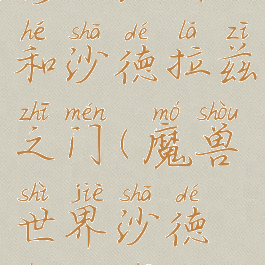 hé shā dé lā zī
和沙德拉兹
zhī mén mó shòu
之门(魔兽
shì jiè shā dé
世界沙德